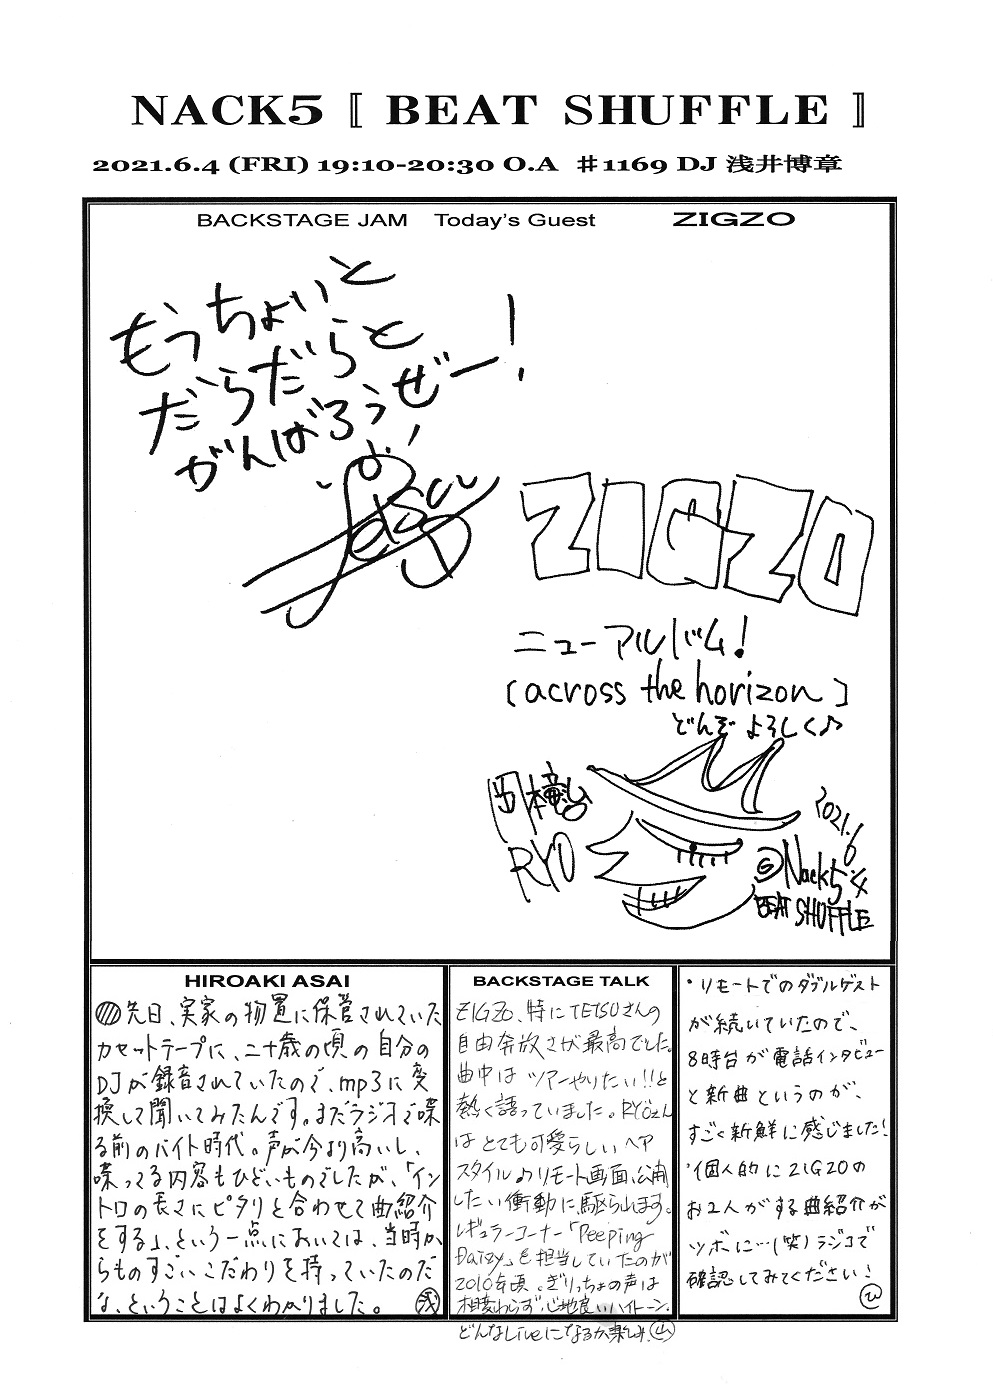 NACK5 〚 BEAT SHUFFLE 〛
2021.6.4 (FRI) 19:10-20:30 O.A ＃1169 DJ 浅井博章
BACKSTAGE JAM Today's Guest ZIGZO
もうちょいと
だらだらと
がんばろうぜー!
ZIGZO
ニューアルバム!
[across the horizon]
どんぞよろしく♪
岡本竜治
RYO
2021.6.4
@Nack5
BEAT SHUFFLE
HIROAKI ASAI
先日、実家の物置に保管されていた
カセットテープに、二十歳の頃の自分の
DJが録音されていたので、mp3に変
換して聞いてみたんです。まだラジオで喋
る前のバイト時代。声が今より高いし、
喋ってる内容もひどいものでしたが、「イン
トロの長さにピタリと合わせて曲紹介
をする」、という一点においては、当時か
らものすごいこだわりを持っていたのだ
な、ということはよくわかりました。
BACKSTAGE TALK
ZIGZO、特にTETSUさんの
自由奔放さが最高でした。
曲中は ツアーやりたい!!と
熱く語っていました。RYOさん
はとても可愛らしいヘア
スタイル♪リモート画面、公開
したい衝動に駆られます。
レギュラーコーナー「Peeping
Daizy」を担当していたのが
2010年頃。ぎりっちょの声は
相変わらず心地良いハイトーン。
どんなLiveになるか楽しみ。(山)
・リモートでのダブルゲスト
が続いていたので、
8時台が電話インタビュー
と新曲というのが、
すごく新鮮に感じました!
・個人的にZIGZOの
お2人がする曲紹介が
ツボに…(笑)ラジコで
確認してみてください! (ひ)